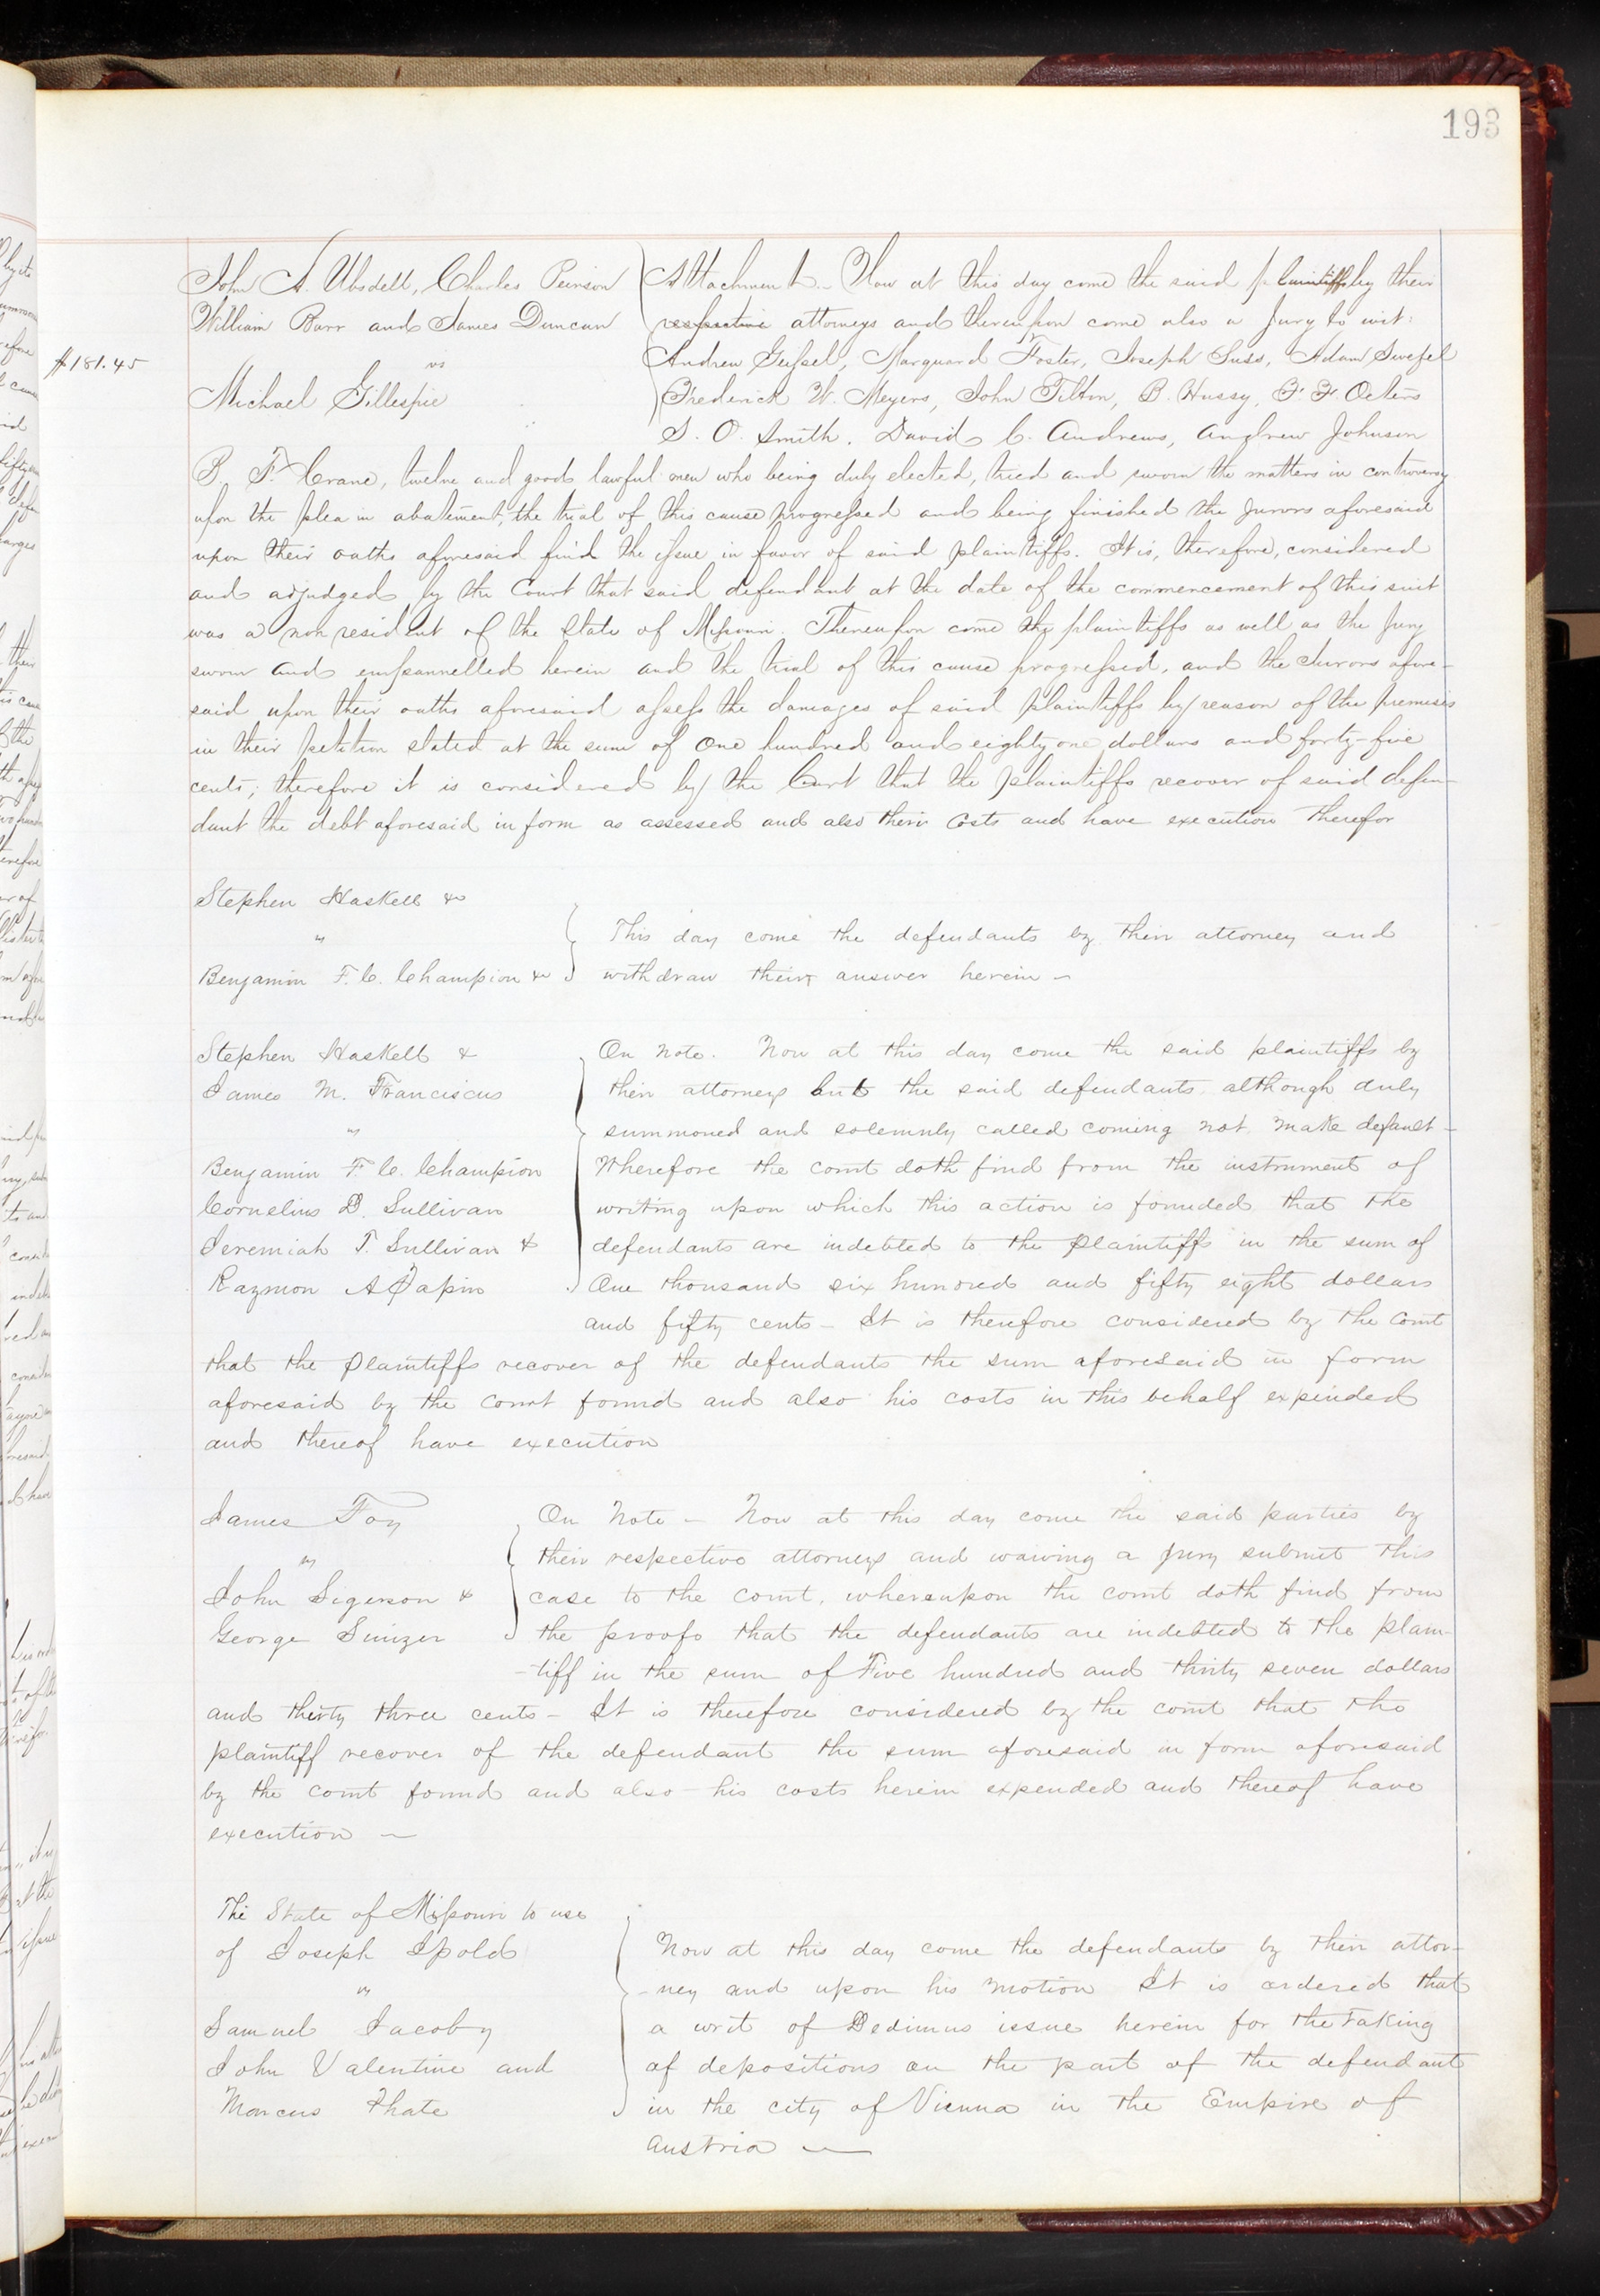 193
John A. Ubsdell, Charles Peirson
William Barr and James Duncan
vs
Michael Gillespie
$181.45
Attachment. Now at this day come the said plaintiffs by their
respective attorneys and thereupon come also a Jury to wit:
Andrew Geissel, Marquard Foster, Joseph Suss, Adam
Frederick W. Meyers, John Tilton, B. Hussy, F. F. Oeters
S. O. Smith, David C. Andrews, Andrew Johnson
B. F. Crane, twelve and good lawful men who being duly elected, tried and sworn the matters in controversy
upon the plea in abatement, the trial of this cause progressed and being finished the Jurors aforesaid
upon their oaths aforesaid find the issue in favor of said plaintiffs. It is, therefore, considered
and adjudged by the Court that said defendant at the date of the commencement of this suit
was a non resident of the State of Missouri. Thereupon come the plaintiffs as well as the Jury
sworn and empannelled herein and the trial of this cause progressed, and the Jurors afore-
said upon their oaths aforesaid assess the damages of said plaintiffs by reason of the premises
in their petition stated at the sum of One hundred and eighty one dollars and forty-five
cents; therefore it is considered by the Court that the plaintiffs recover of said defen-
dant the debt aforesaid in form as assessed and also their Costs and have execution therefor
Stephen Haskell &c
vs
Benjamin F. C. Champion &c
This day come the defendants by their attorney and
withdraw their answer herein —
Stephen Haskell &
James M. Franciscus
vs
Benjamin F. C. Champion
Cornelius D. Sullivan
Jeremiah T. Sullivan &
Raymon A Papin
On Note. Now at this day come the said plaintiffs by
their attorneys but the said defendants although duly
summoned and solemnly called coming not make default —
Wherefore the court doth find from the instrument of
writing upon which this action is founded that the
defendants are indebted to the Plaintiffs in the sum of
One thousand six hundred and fifty eight dollars
and fifty cents — It is therefore considered by the Court
that the Plaintiffs recover of the defendants the sum aforesaid in form
aforesaid by the court found and also his costs in this behalf expended
and thereof have execution
James Foy
vs
John Sigerson &
George
On Note — Now at this day come the said parties by
their respective attorneys and waiving a Jury submit this
case to the court, whereupon the court doth find from
the proofs that the defendants are indebted to the plain-
-tiff in the sum of Five hundred and thirty seven dollars
and thirty three cents — It is therefore considered by the court that the
plaintiff recover of the defendant the sum aforesaid in form aforesaid
by the court found and also his costs herein expended and thereof have
execution —
The State of Missouri to use
of Joseph Ipold
vs
Samuel Jacoby
John Valentine and
Marcus Thate
Now at this day come the defendants by their attor-
-ney and upon his motion It is ordered that
a writ of Dedimus issue herein for the taking
of depositions on the part of the defendant
in the city of Vienna in the Empire of
Austria —